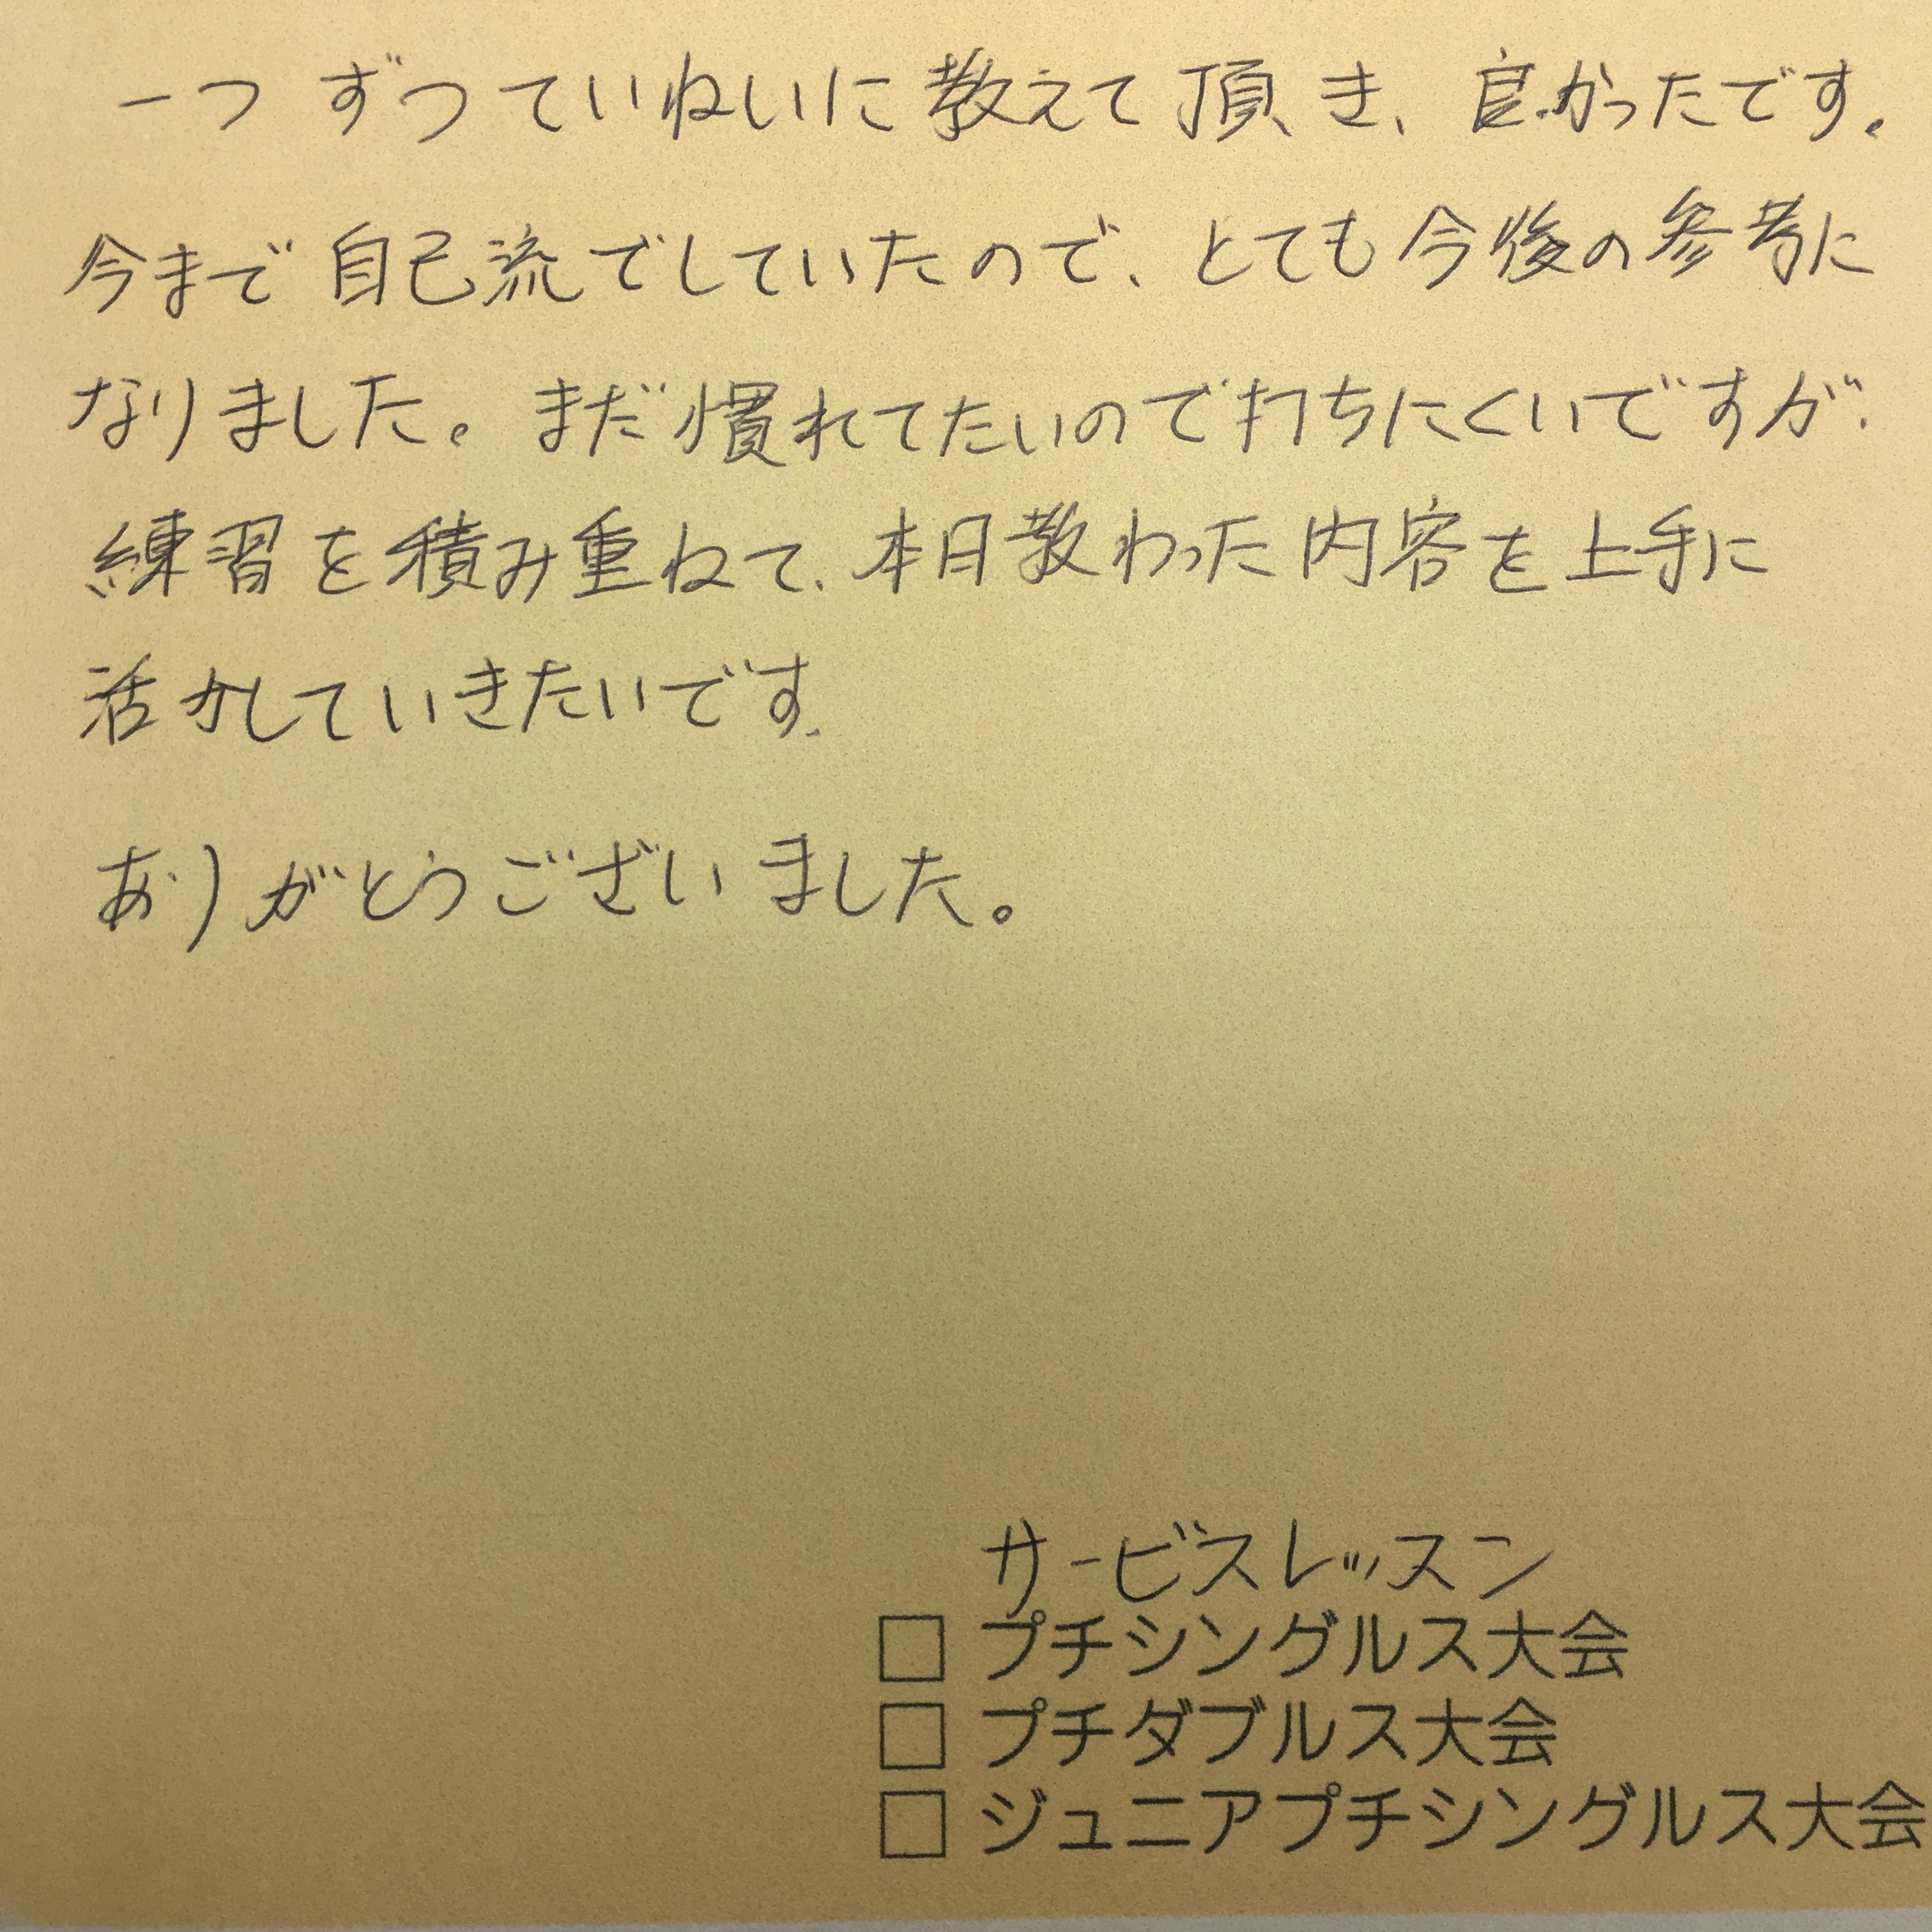 一つずつていねいに教えて頂き、良かったです。
今まで自己流でしていたので、とても今後の参考に
なりました。まだ慣れてたいので打ちにくいですが、
練習を積み重ねて、本日教わった内容を上手に
活かしていきたいです。
ありがとうございました。
サービスレッスン
□ プチシングルス大会
□ プチダブルス大会
□ ジュニアプチシングルス大会